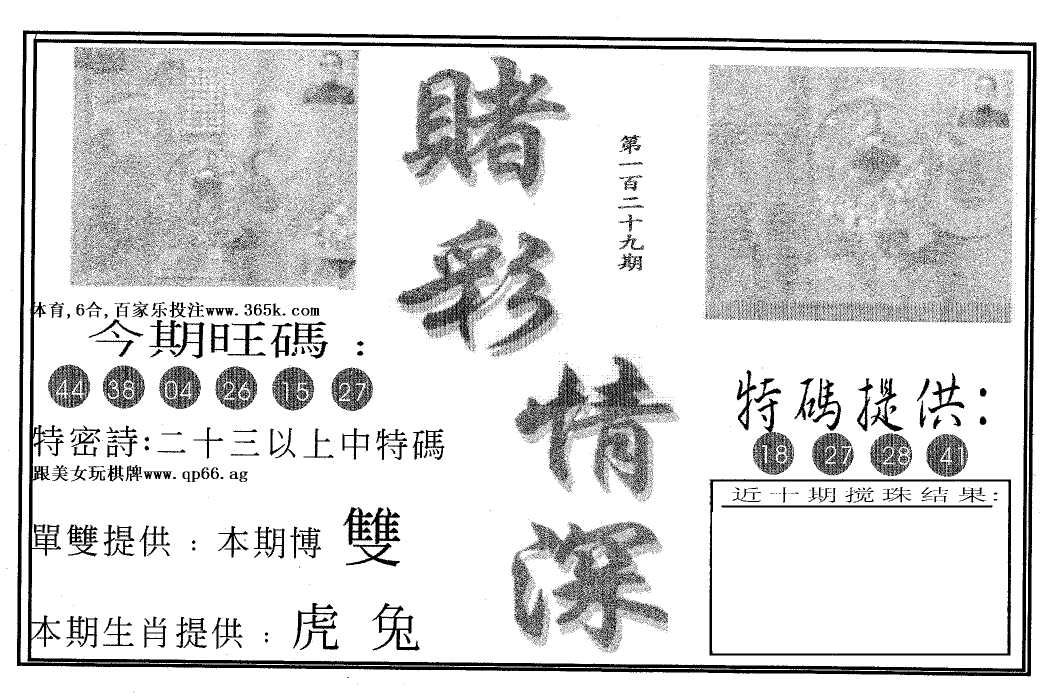 賭彩情深
第一百二十九期
体育,6合,百家乐投注www.365k.com
今期旺碼：
44 38 04 26 15 27
特密詩:二十三以上中特碼
跟美女玩棋牌www.qp66.ag
單雙提供：本期博 雙
本期生肖提供：虎 兔
特碼提供：
18 27 28 41
近十期搅珠结果: